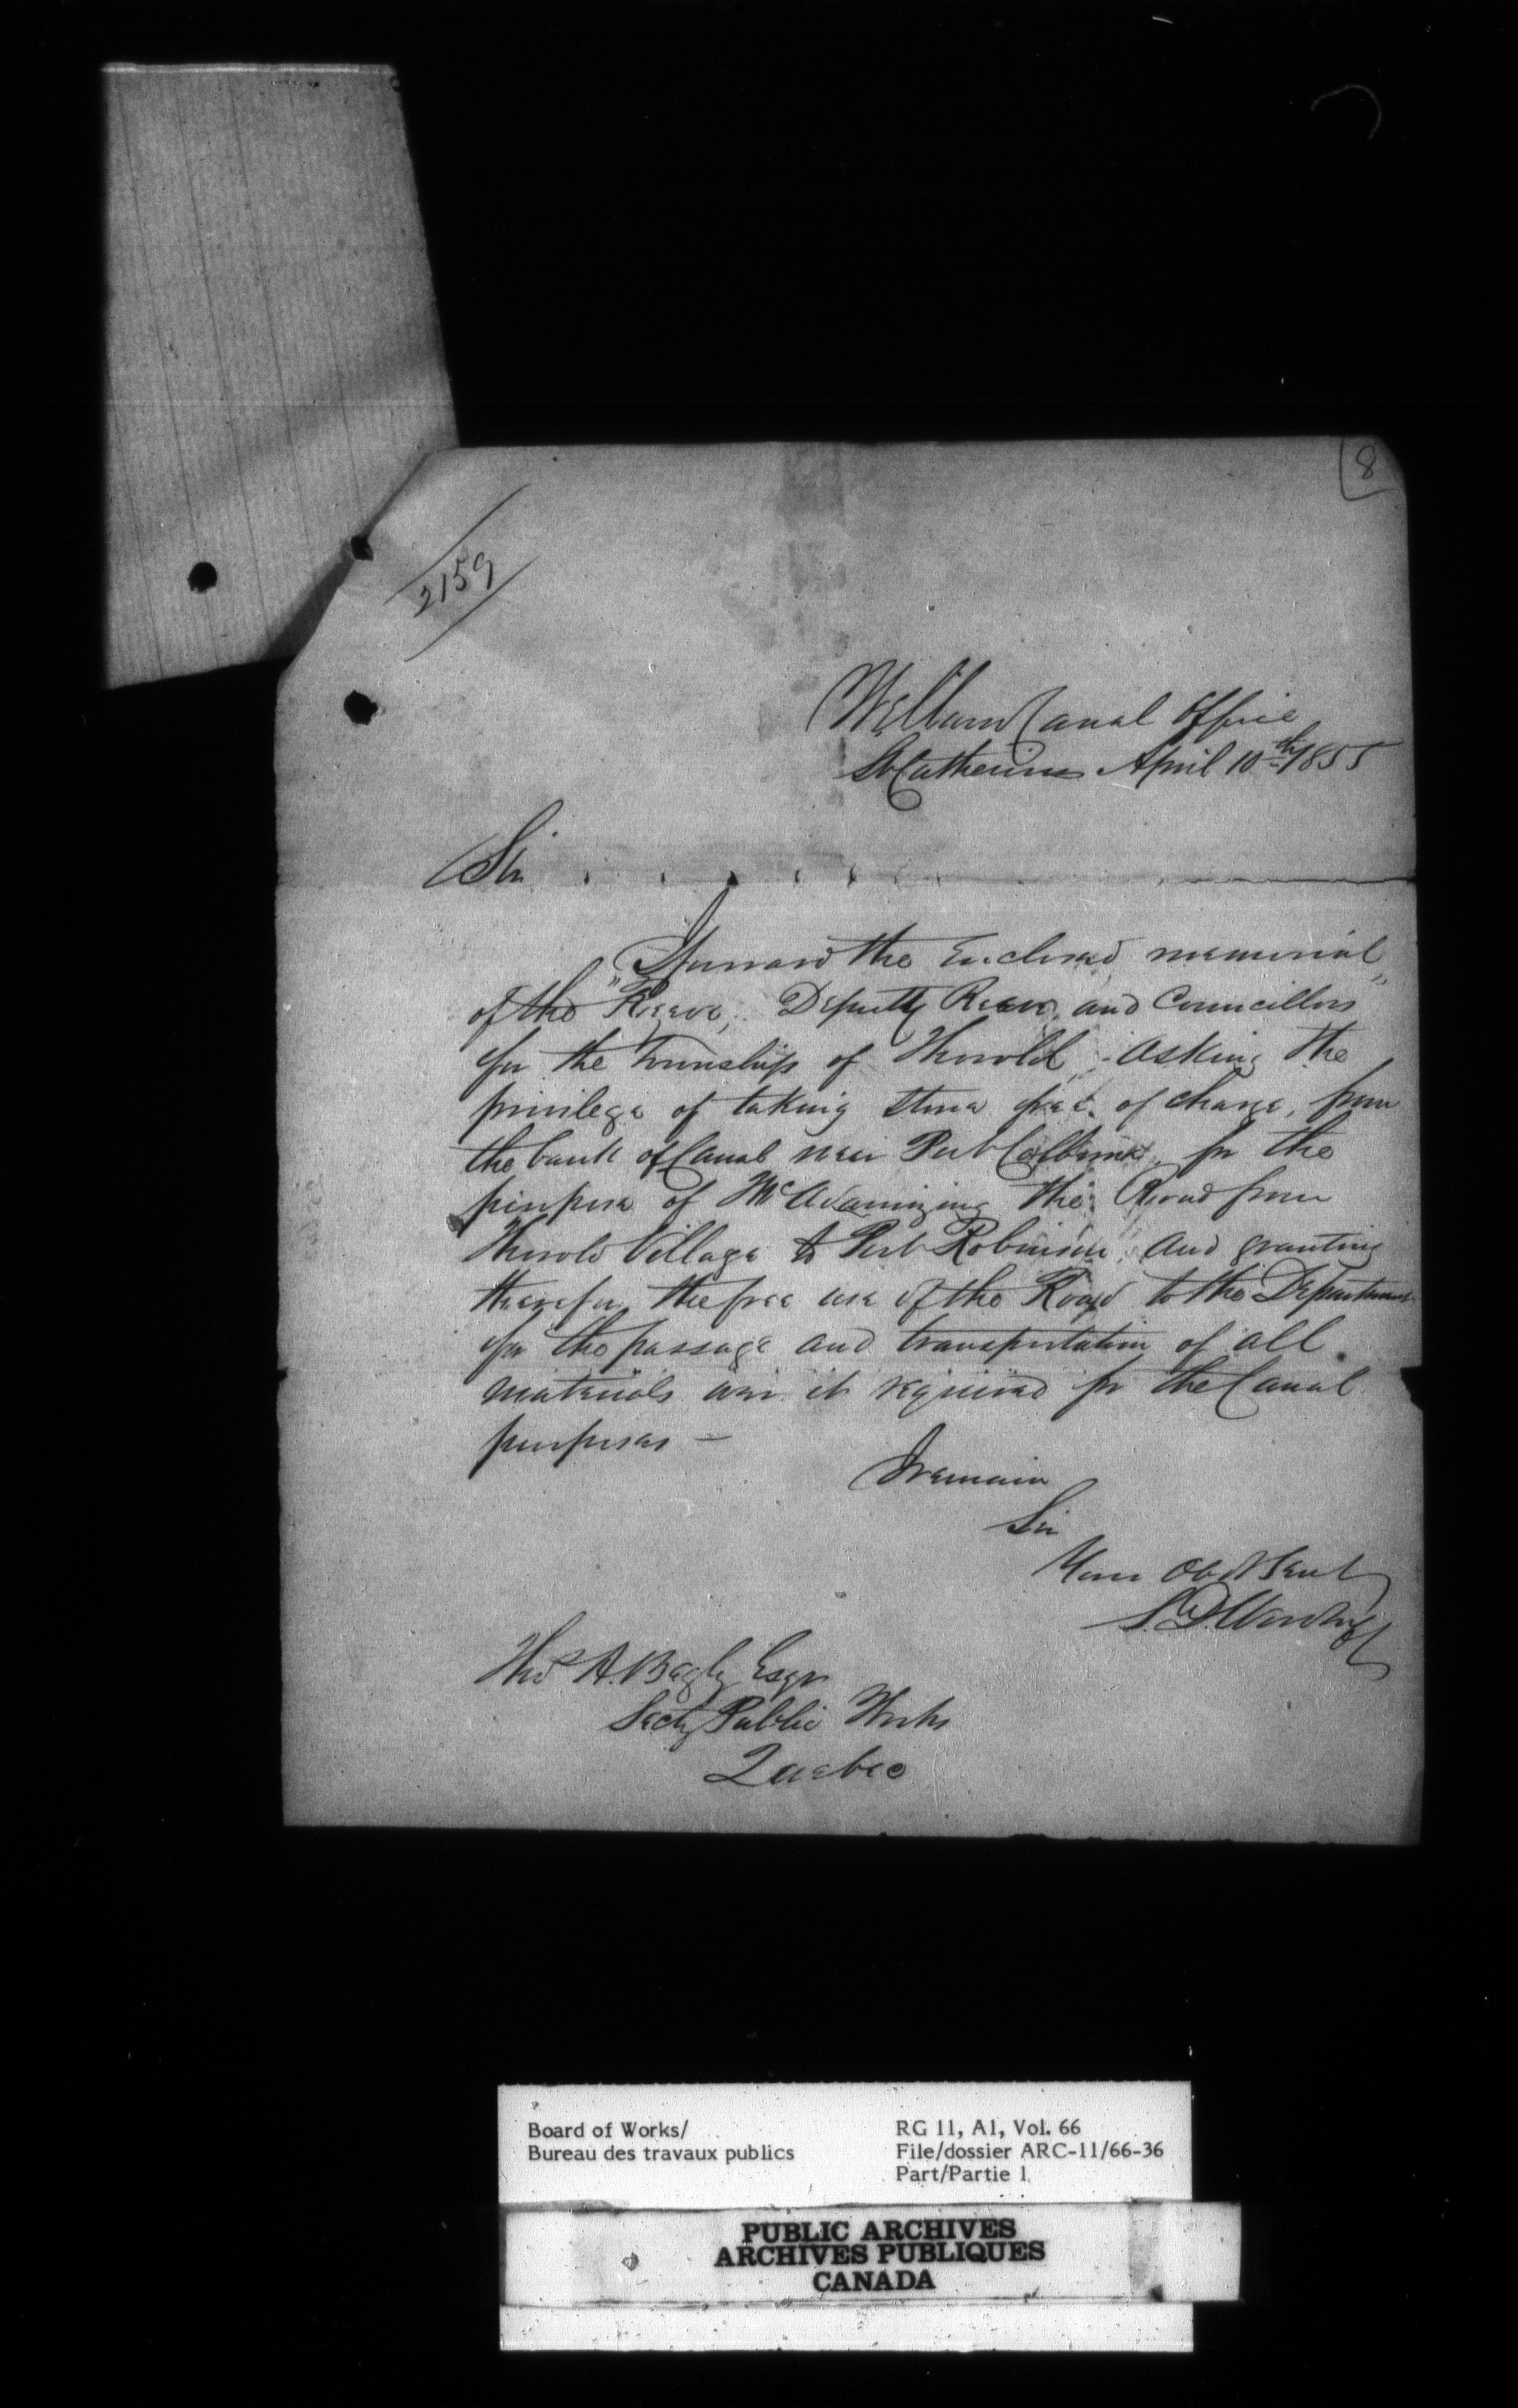 8
2159
Welland Canal Office
St Catherines April 10th 1855
Sir
I forward the Enclosed memorial
of the "Reeve, Deputy Reeve, and Councillors"
for the Township of Thorold, asking the
privilege of taking stone free of charge, from
the bank of Canal near Port Colborne, for the
purpose of McAdamizing the Road from
Thorold Village to Port Robinson, and granting
therefor the free use of the Road to the Department
for the passage and transportation of all
materials over it required for the Canal
purposes —
I remain
Sir
Your Obdt Servt
S. D. Woodruff
Thos A. Begly Esqr
Secty Public Works
Quebec
Board of Works/
Bureau des travaux publics
RG 11, A1, Vol. 66
File/dossier ARC-11/66-36
Part/Partie 1
PUBLIC ARCHIVES
ARCHIVES PUBLIQUES
CANADA